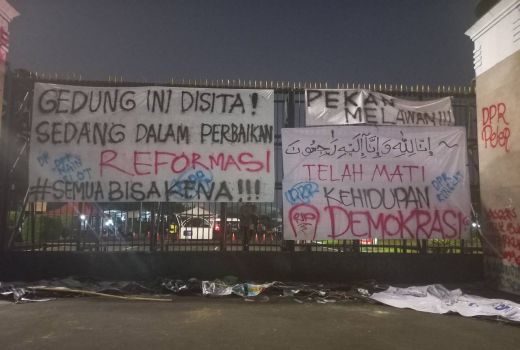 GEDUNG INI DISITA!
SEDANG DALAM PERBAIKAN
REFORMASI
#SEMUA BISA KENA!!!
PEKAN
MELAWAN!!!
إنا لله وإنا إليه راجعون
TELAH MATI
KEHIDUPAN
DEMOKRASI
DPR